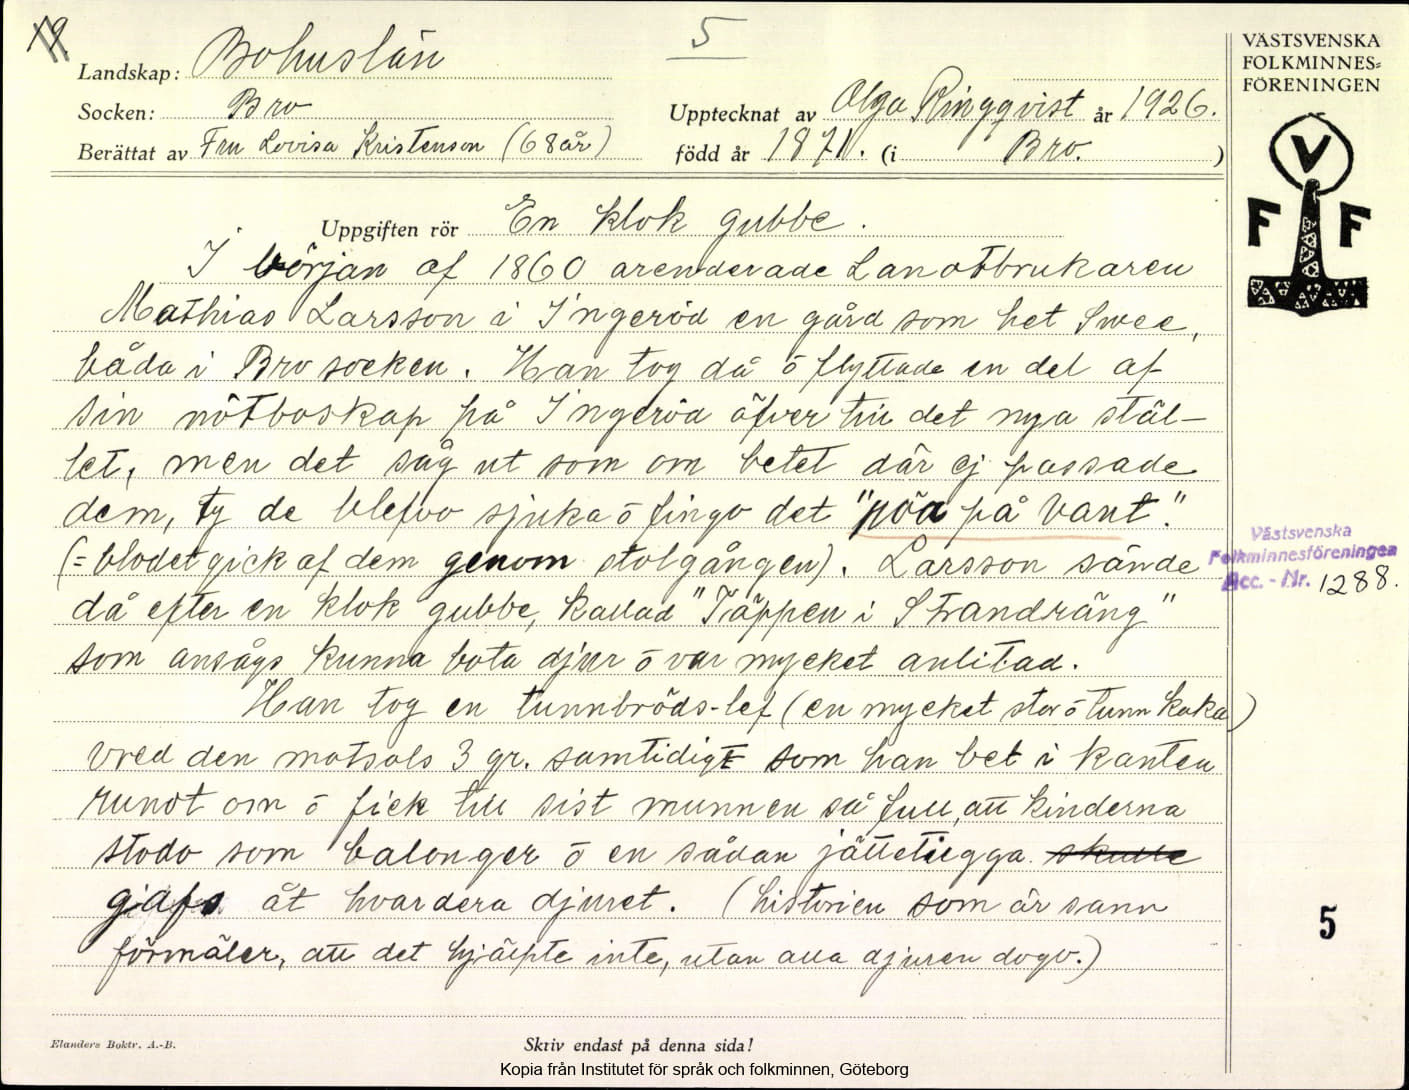 19.
Landskap: Bohuslän
5
VÄSTSVENSKA
FOLKMINNES=
FÖRENINGEN
Socken: Bro
Upptecknat av Olga Ringqvist år 1926.
Berättat av Fru Lovisa Kristenson (68 år)
född år 1871. (i Bro.)
V
F F
Uppgiften rör En klok gubbe.
I början af 1860 arenderade Landtbrukaren
Mathias Larsson i Ingeröd en gård som het Svee,
båda i Bro socken. Han tog då ō flyttade en del af
sin nötboskap på Ingeröd öfver till det nya stäl-
let, men det såg ut som om betet där ej passade
dem, ty de blefvo sjuka ō fingo det "pöa på vant".
(= blodet gick af dem genom stolgången). Larsson sände
då efter en klok gubbe, kallad "Täppen i Strandräng"
som ansågs kunna bota djur ō var mycket anlitad.
Han tog en tunnbröds-lef (en mycket stor ō tunn kaka)
vred den motsols 3 gr. samtidigt som han bet i kanten
rundt om ō fick till sist munnen så full, att kinderna
stodo som balonger ō en sådan jättetugga skulle
gafs åt hvardera djuret. (historien som är sann
förmäler, att det hjälpte inte, utan alla djuren dogo.)
Västsvenska
Folkminnesföreningen
Acc. - Nr. 1288.
5
Elanders Boktr. A.-B.
Skriv endast på denna sida!
Kopia från Institutet för språk och folkminnen, Göteborg